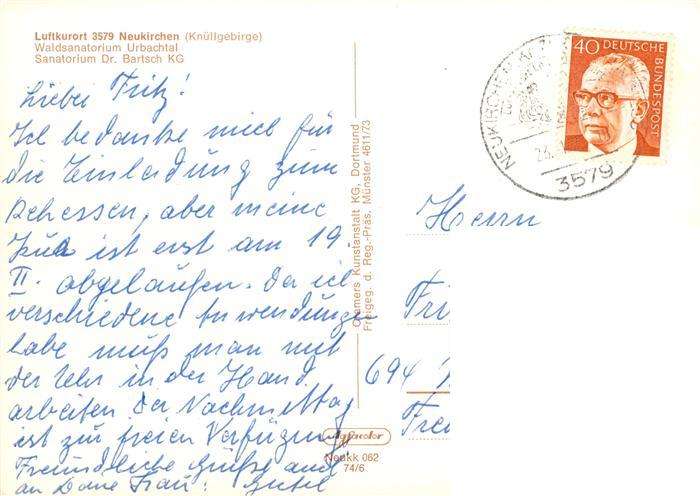 Luftkurort 3579 Neukirchen (Knüllgebirge)
Waldsanatorium Urbachtal
Sanatorium Dr. Bartsch KG
Lieber Fritz!
Ich bedanke mich für
die Einladung zum
Rehessen, aber meine
Kur ist erst am 19
II. abgelaufen. Da ich
verschiedene Anwendungen
habe muß man mit
der Uhr in der Hand
arbeiten. Der Nachmittag
ist zur freien Verfügung.
Freundliche Grüße auch
an Deine Frau:
Cramers Kunstanstalt KG, Dortmund
Freigeg. d. Reg.-Präs. Münster 4611/73
Neukk 062
74/6
40 DEUTSCHE
BUNDESPOST
NEUKIRCHEN
3579
Herrn
Fri
694
Frei